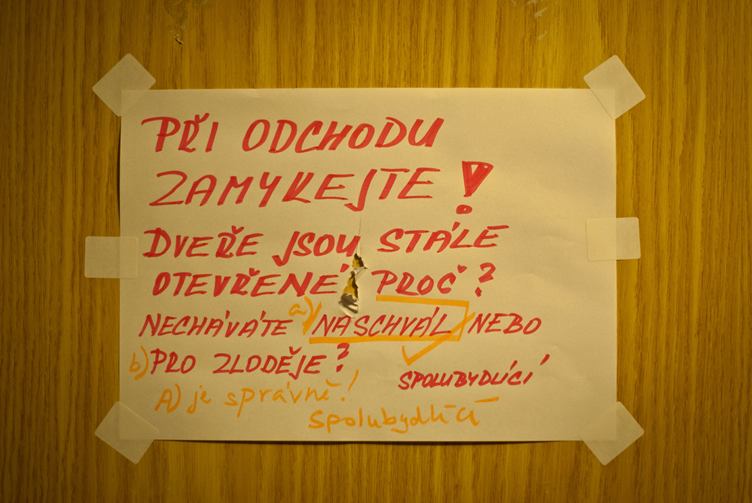 PŘI ODCHODU
ZAMYKEJTE!
DVEŘE JSOU STÁLE
OTEVŘENÉ PROČ?
NECHÁVÁTE a) NASCHVÁL NEBO
b) PRO ZLODĚJE?
SPOLUBYDLÍCÍ
A) je správně!
Spolubydlící